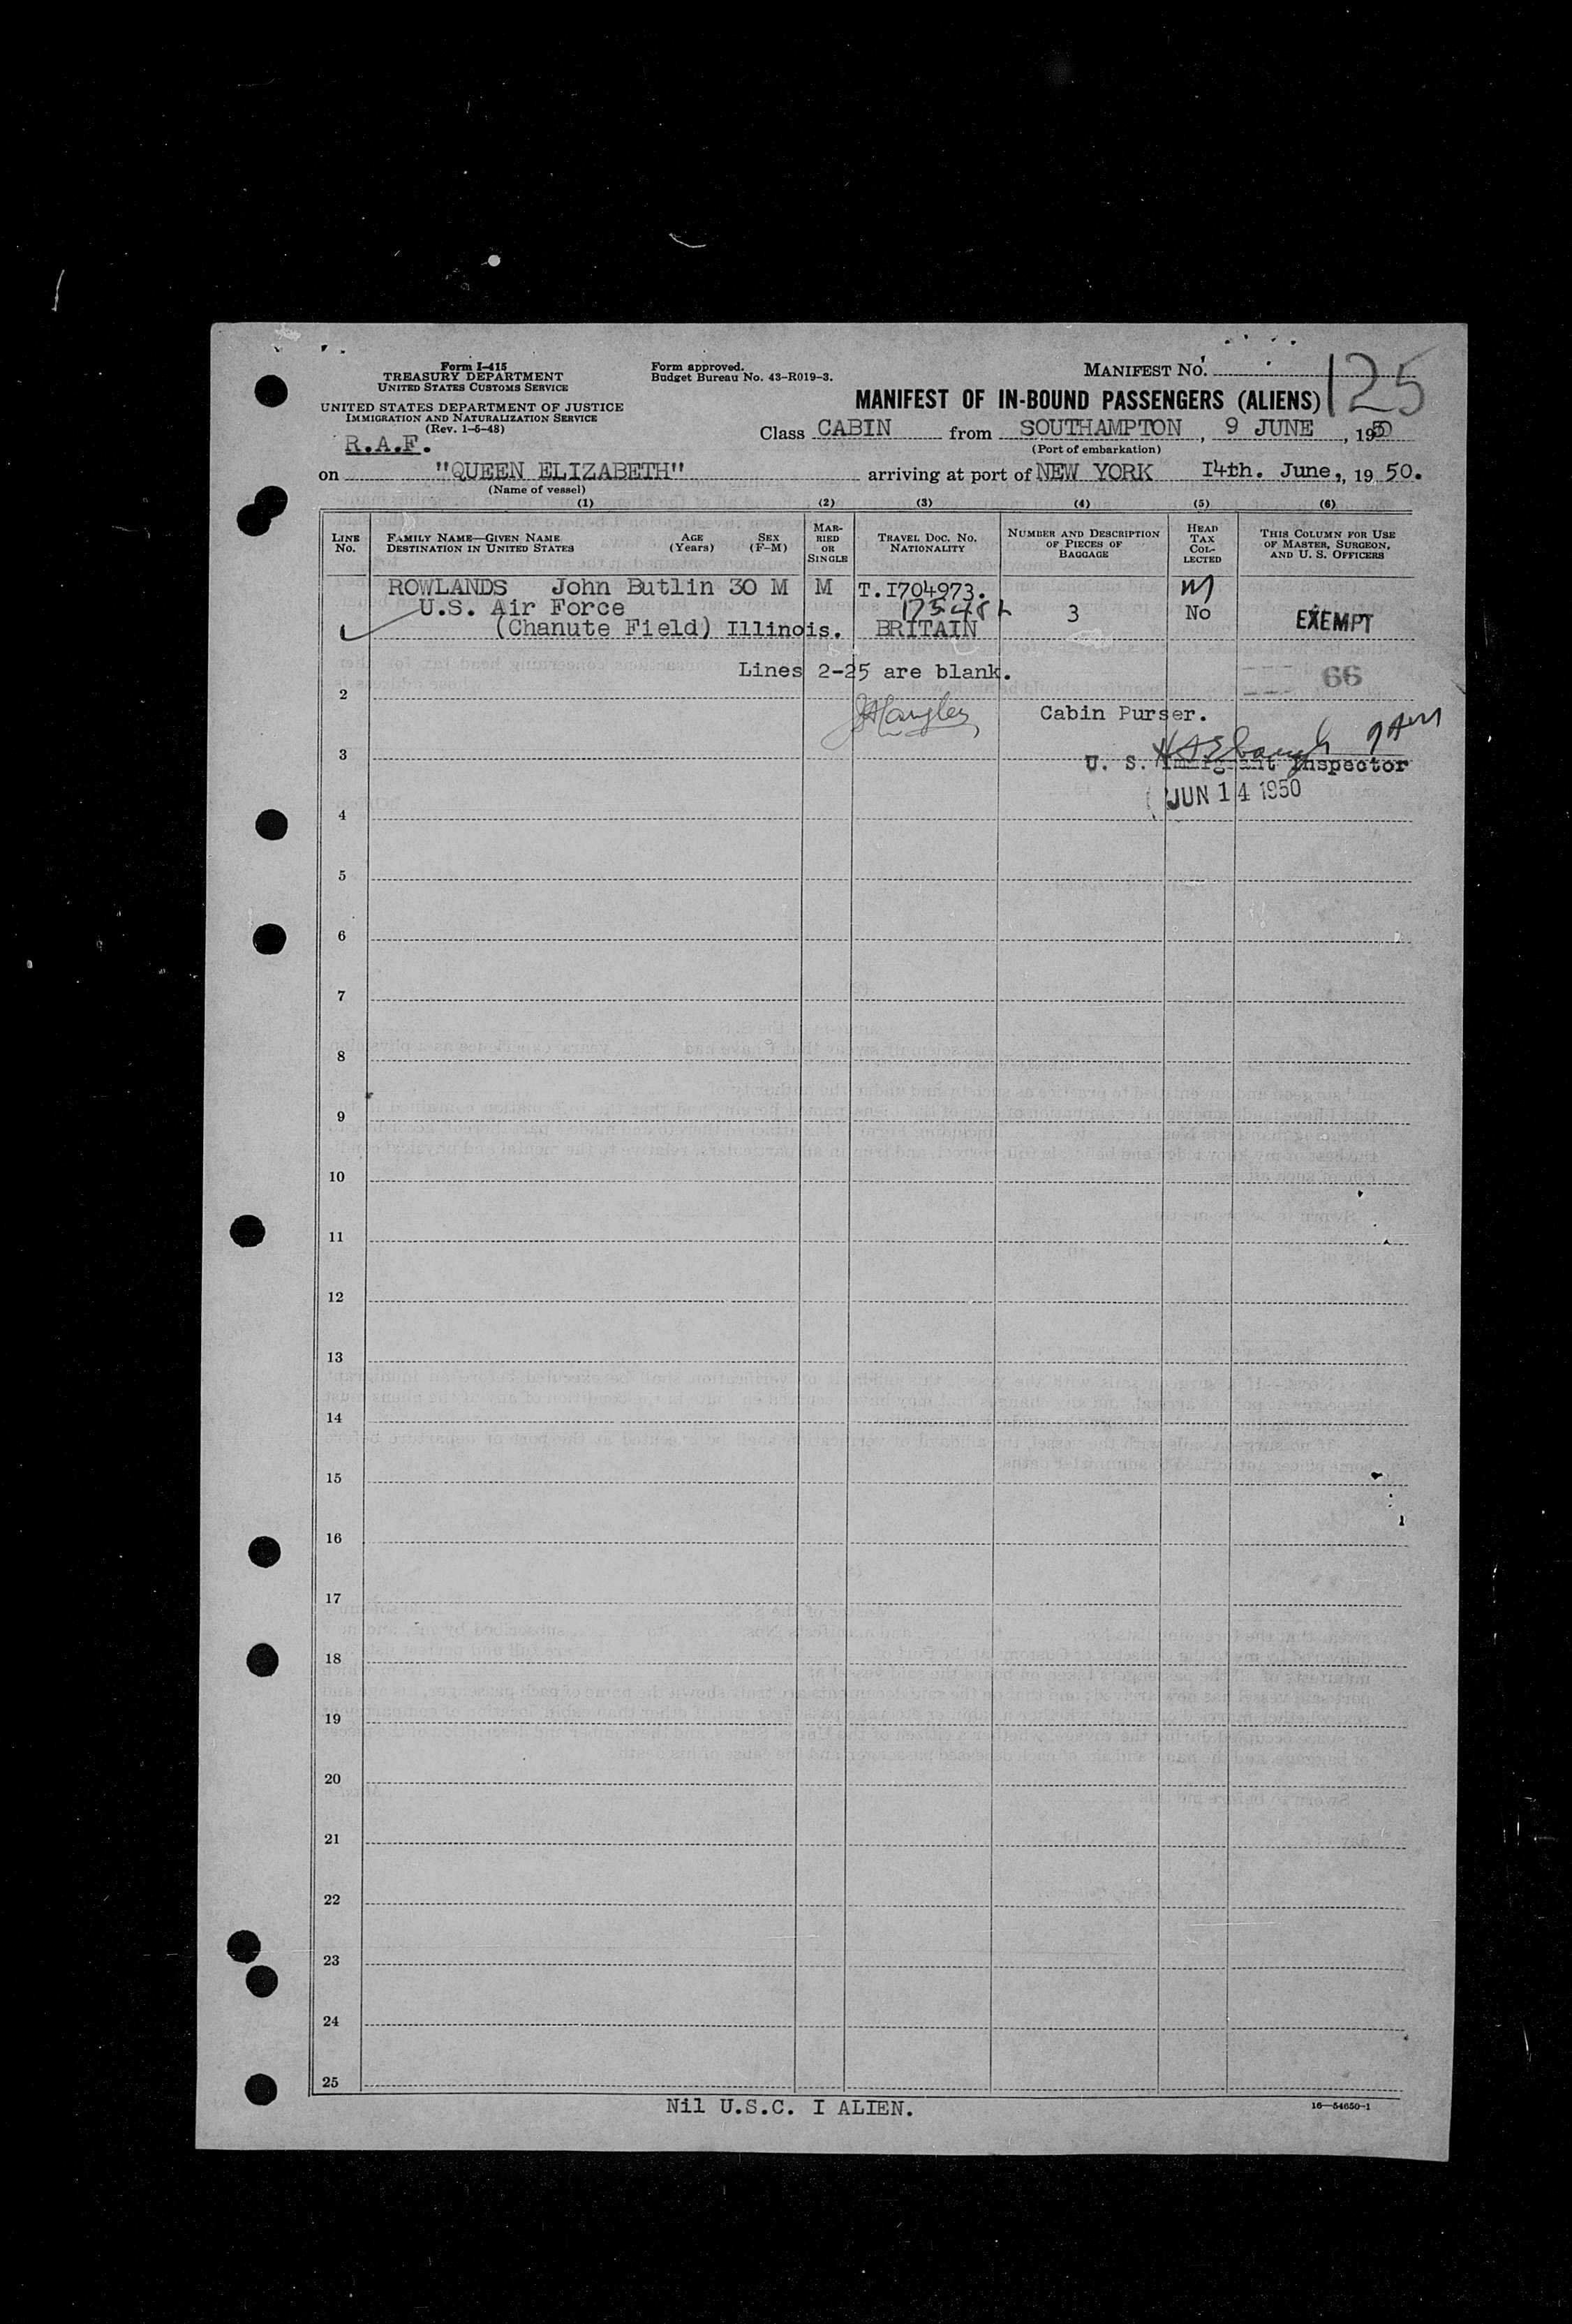 Form I-415
TREASURY DEPARTMENT
UNITED STATES CUSTOMS SERVICE
UNITED STATES DEPARTMENT OF JUSTICE
IMMIGRATION AND NATURALIZATION SERVICE
(Rev. 1-5-48)
R.A.F.
Form approved.
Budget Bureau No. 43-R019-3.
MANIFEST NO. 125
MANIFEST OF IN-BOUND PASSENGERS (ALIENS)
Class CABIN from SOUTHAMPTON, 9 JUNE, 1950
(Port of embarkation)
on "QUEEN ELIZABETH" arriving at port of NEW YORK I4th. June, 19 50.
(Name of vessel)
(1) (2) (3) (4) (5) (6)
LINE NO.
FAMILY NAME—GIVEN NAME
DESTINATION IN UNITED STATES
AGE
(Years)
SEX
(F-M)
MAR-
RIED
OR
SINGLE
TRAVEL DOC. NO.
NATIONALITY
NUMBER AND DESCRIPTION
OF PIECES OF
BAGGAGE
HEAD
TAX
COL-
LECTED
THIS COLUMN FOR USE
OF MASTER, SURGEON,
AND U. S. OFFICERS
ROWLANDS John Butlin 30 M M T.I704973.
U.S. Air Force 3 No EXEMPT
(Chanute Field) Illinois. BRITAIN
Lines 2-25 are blank. 66
2
Cabin Purser.
3
U. S. Immigrant Inspector
JUN 14 1950
4
5
6
7
8
9
10
11
12
13
14
15
16
17
18
19
20
21
22
23
24
25
Nil U.S.C. I ALIEN.
16—54650-1